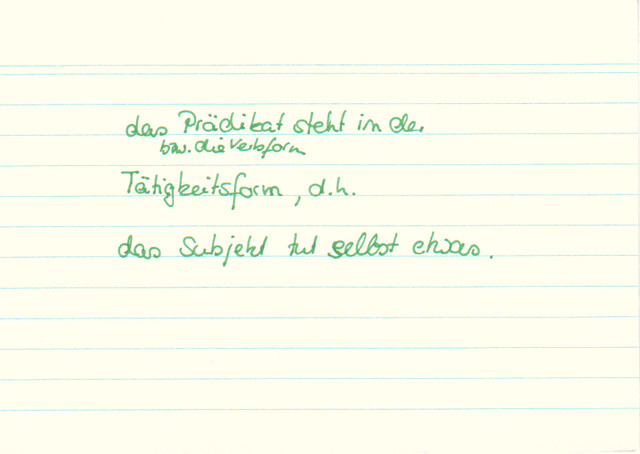 das Prädikat steht in der
bzw. die Verbform
Tätigkeitsform, d.h.
das Subjekt tut selbst etwas.